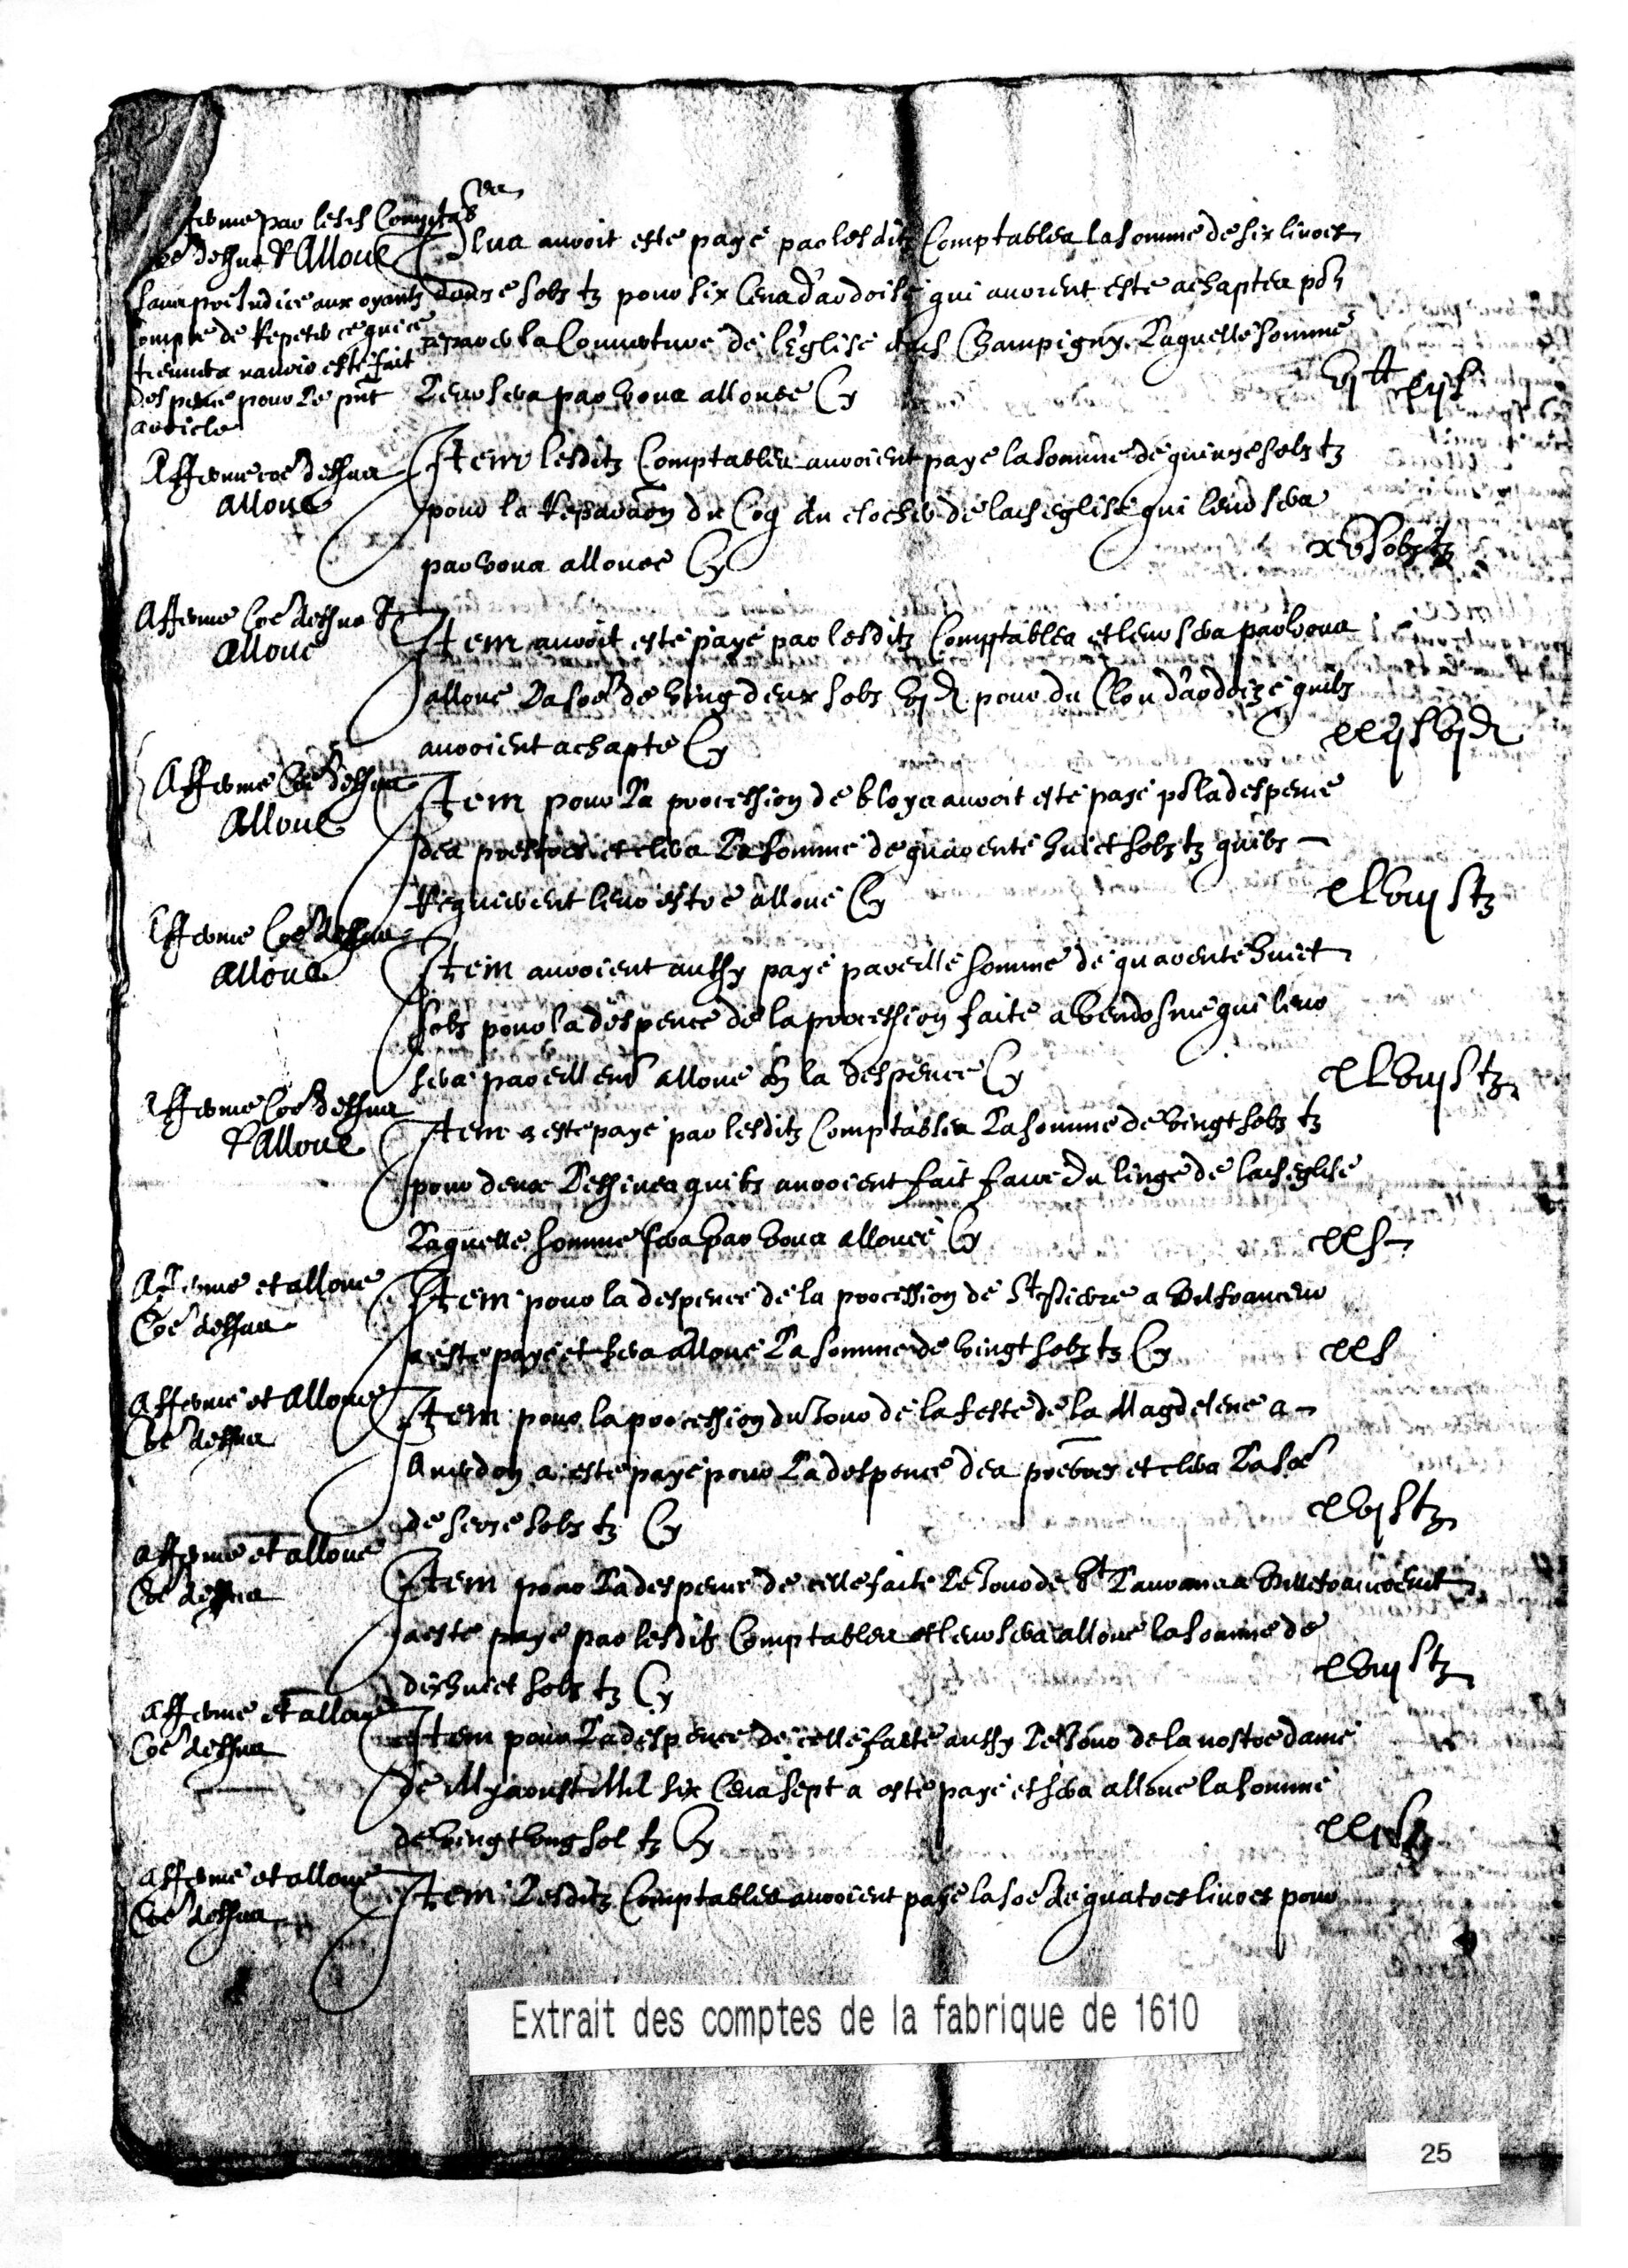 Afferme par lesd Comptab
les
coe dessus & Alloue
sans preiudice aux oyants
compte de Repeter ce qui ce
trouvera navoir esté fait
despence pour le pnt
article
Plus auroit esté payé par lesditz Comptables la somme de six livres
douze solz tz pour six Cens d'ardoise qui auroient esté achaptés por
reparer la Couuerture de l'Eglise dud Champigny, Laquelle somme
Leur sera par vous allouée Cy
vj tt xij s
Afferme coe dessus
alloué
Item lesditz Comptables auroient payé la somme de quinze solz tz
pour la Reparaon du Coq du clocher de lad eglise qui leur sera
par vous allouée Cy
xv solz tz
Afferme Coe dessus &
alloué
Item auroit esté payé par lesditz Comptables et leur sera par vous
alloué La soe de ving deux solz vj d pour du Clou d'ardoize quilz
auroient achapté Cy
xxij s vj d
Afferme Coe dessus
Alloué
Item pour La procession de bloys auroit esté payé por la despence
des prestres et clers La somme de quarente huict solz tz quilz
Requierent leur estre alloué Cy
xlviij s tz
Afferme Coe dessus
alloué
Item auroient aussy payé pareille somme de quarente huict
solz pour la despence de la procession faite a Vendosme qui leur
sera pareillemt alloué en la despence Cy
xlviij s tz
Afferme Coe dessus
& Alloué
Item a esté payé par lesditz Comptables La somme de vingt solz tz
pour deux Lessives quilz auroient fait faire du linge de lad eglise
Laquelle somme sera par vous allouée Cy
xx s
Afferme et alloué
Coe dessus
Item pour la despence de la procession de St Pierre a Villefrancœur
a esté payé et sera alloué La somme de vingt solz tz Cy
xx s
Afferme et Alloué
Coe dessus
Item pour la procession du Jour de la feste de la Magdelene a
Averdon a esté payé pour La despence des prebres et clers La soe
de seize solz tz Cy
xvj s tz
Afferme et alloué
Coe dessus
Item pour La despence de celle faite Le Jour de St Laurans a
a esté payé par lesdits Comptables et leur sera alloué la somme de
dixhuict solz tz Cy
xviij s tz
Afferme et alloué
Coe dessus
Item pour La despence de celle faite aussy Le Jour de la nostre dame
de My aoust Mil six Cens sept a esté payé et sera alloué la somme
de vingt ung sol tz Cy
xxj s tz
Afferme et alloué
Coe dessus
Item Lesditz Comptables auroient payé la soe de quatres livres pour
Extrait des comptes de la fabrique de 1610
25